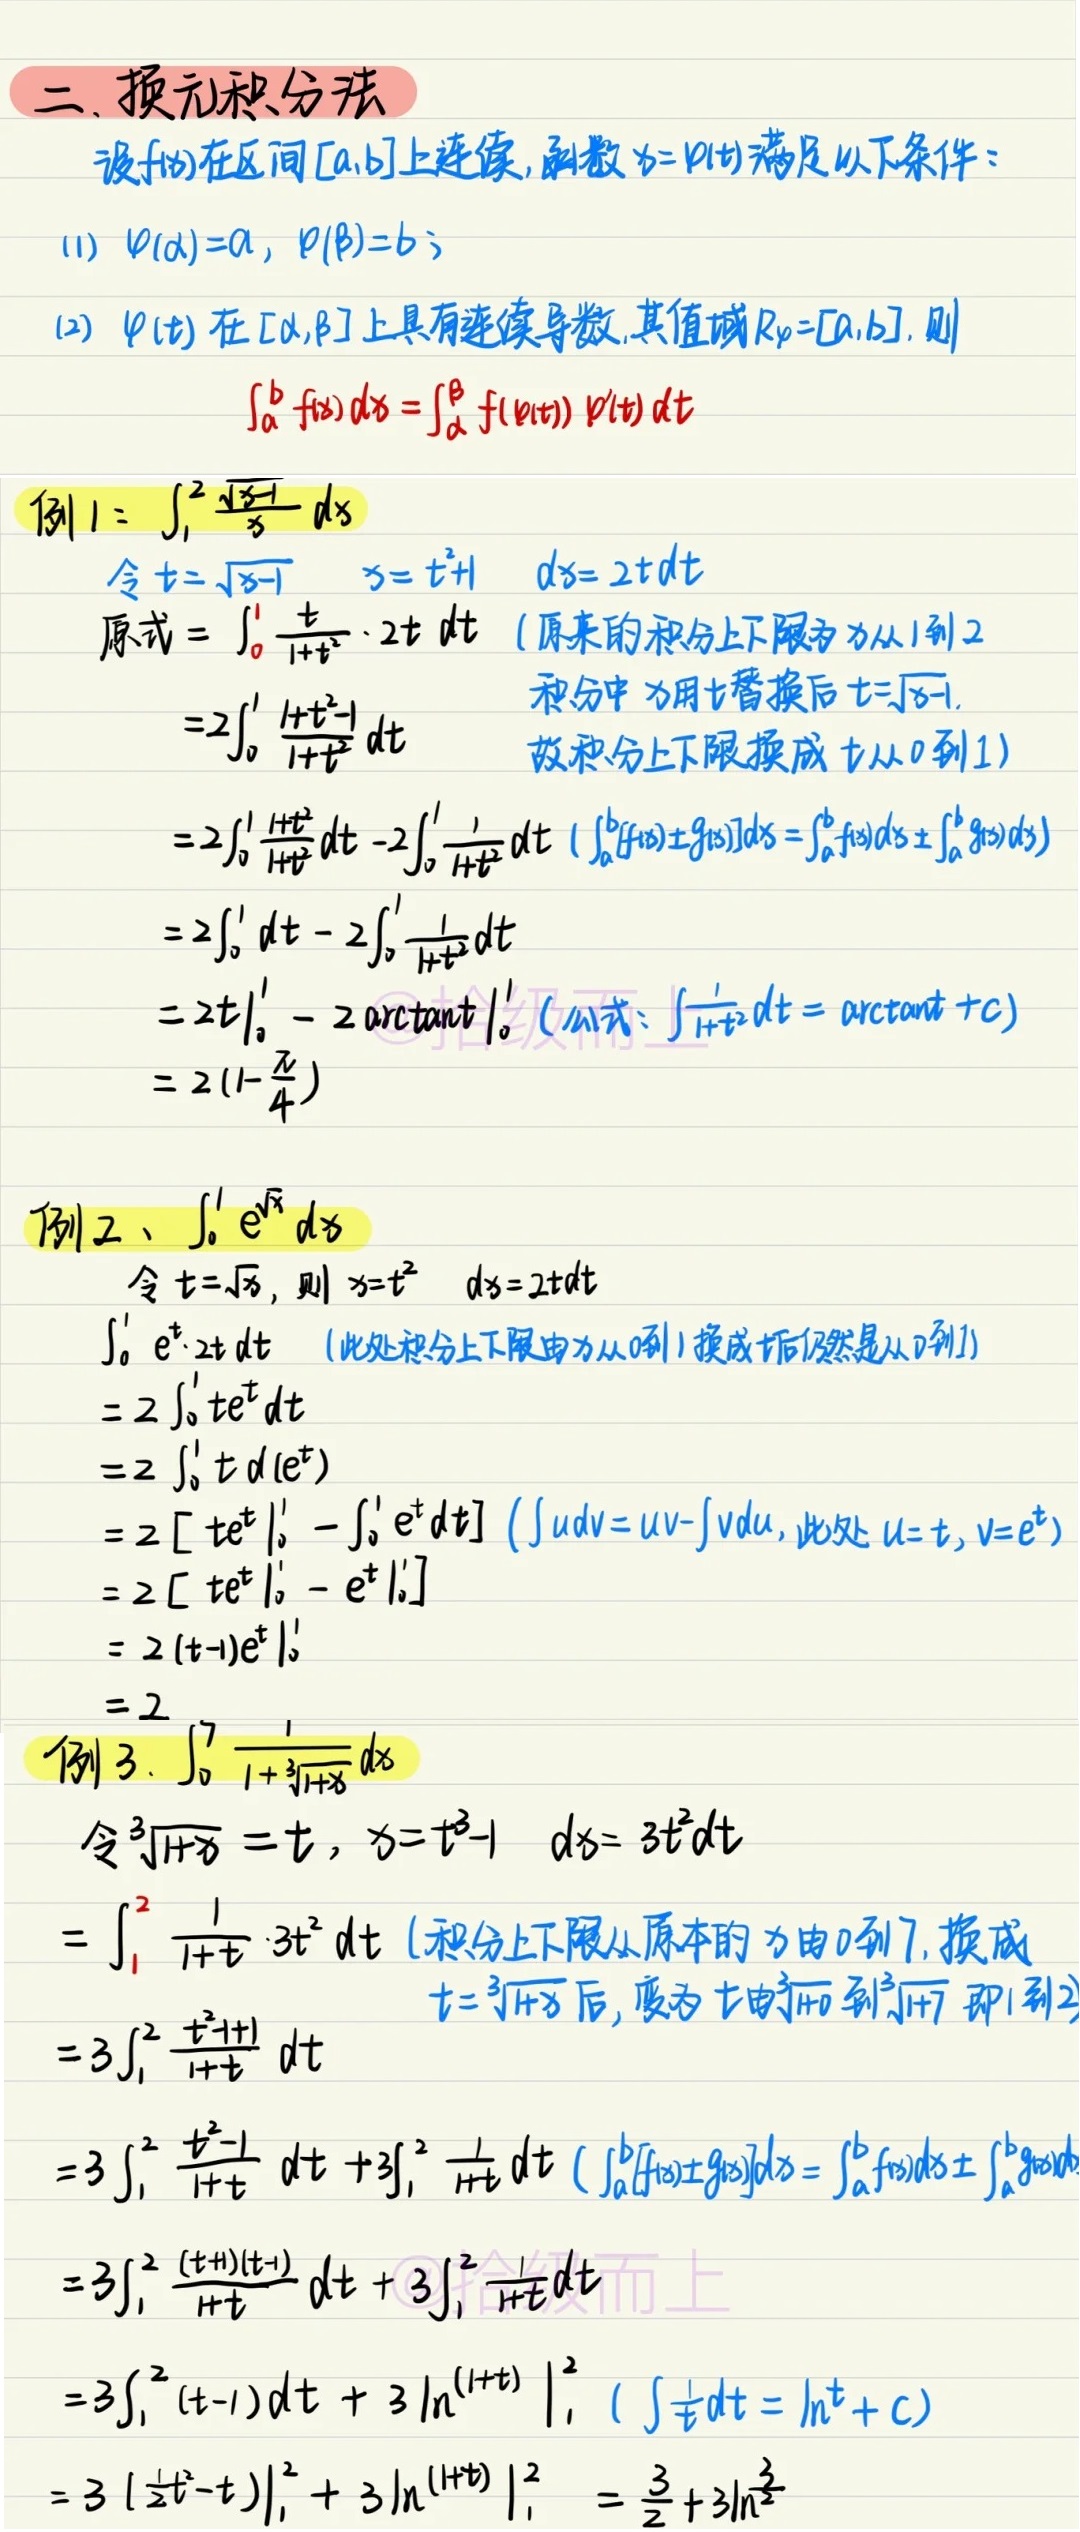 二、换元积分法
设f(x)在区间[a,b]上连续,函数x=φ(t)满足以下条件:
(1) φ(α)=a, φ(β)=b;
(2) φ(t)在[α,β]上具有连续导数,其值域Rφ=[a,b],则
∫_a^b f(x)dx=∫_α^β f(φ(t))φ'(t)dt
例1: ∫_1^2 √(x-1)/x dx
令t=√(x-1) x=t²+1 dx=2tdt
原式=∫_0^1 t/(1+t²)·2t dt (原来的积分上下限为x从1到2
积分中x用t替换后t=√(x-1).
=2∫_0^1 (1+t²-1)/(1+t²) dt
故积分上下限换成t从0到1)
=2∫_0^1 (1+t²)/(1+t²) dt-2∫_0^1 1/(1+t²) dt (∫_a^b[f(x)±g(x)]dx=∫_a^b f(x)dx±∫_a^b g(x)dx)
=2∫_0^1 dt-2∫_0^1 1/(1+t²) dt
=2t|_0^1 - 2arctant|_0^1 (公式:∫1/(1+t²) dt=arctant+C)
@拾级而上
=2(1-π/4)
例2、∫_0^1 e^√x dx
令t=√x,则x=t² dx=2tdt
∫_0^1 e^t·2t dt (此处积分上下限由x从0到1换成t后仍然是从0到1)
=2∫_0^1 te^t dt
=2∫_0^1 t d(e^t)
=2[te^t|_0^1 -∫_0^1 e^t dt] (∫udv=uv-∫vdu,此处u=t,v=e^t)
=2[te^t|_0^1 - e^t|_0^1]
=2(t-1)e^t|_0^1
=2
例3.∫_0^7 1/(1+∛(1+x)) dx
令∛(1+x)=t, x=t³-1 dx=3t²dt
=∫_1^2 1/(1+t)·3t² dt (积分上下限从原本的x由0到7,换成
t=∛(1+x)后,变为t由∛(1+0)到∛(1+7) 即1到2)
=3∫_1^2 (t²-1+1)/(1+t) dt
=3∫_1^2 (t²-1)/(1+t) dt+3∫_1^2 1/(1+t) dt (∫_a^b[f(x)±g(x)]dx=∫_a^b f(x)dx±∫_a^b g(x)dx
=3∫_1^2 (t+1)(t-1)/(1+t) dt+3∫_1^2 1/(1+t) dt
@拾级而上
=3∫_1^2 (t-1)dt+3ln^(1+t)|_1^2 (∫1/t dt=ln^t+C)
=3(½t²-t)|_1^2+3ln^(1+t)|_1^2 =3/2+3ln^(3/2)